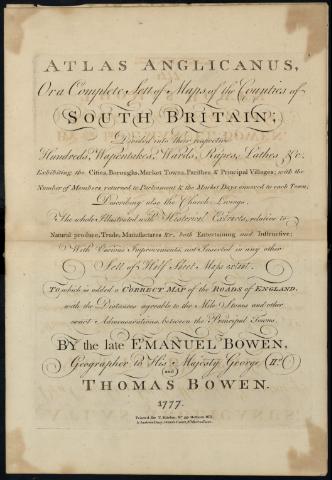 ATLAS ANGLICANUS,
Or a Complete Sett of Maps of the Counties of
SOUTH BRITAIN;
Divided into their respective
Hundreds, Wapentakes, Wards, Rapes, Lathes &c.
Exhibiting the Cities, Boroughs, Market Towns, Parishes & Principal Villages; with the
Number of Members returned to Parliament & the Market Days annexed to each Town;
Describing also the Church-Livings.
The whole Illustrated with Historical Extracts, relative to
Natural produce, Trade, Manufactures &c. both Entertaining and Instructive;
With Various Improvements, not Inserted in any other
Sett of Half Sheet Maps extant.
To which is added a CORRECT MAP of the ROADS of ENGLAND,
with the Distances agreable to the Mile Stones and other
exact Admeasurations, between the Principal Towns.
BY the late EMANUEL BOWEN,
Geographer to His Majesty George II.d
and
THOMAS BOWEN.
1777.
Printed for T. Kitchin, No. 59 Holborn Hill,